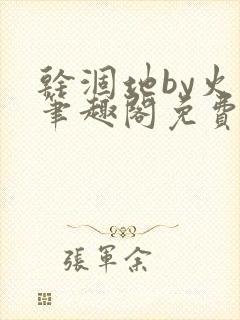 乾涸地by火
筆趣閣免費
張軍余